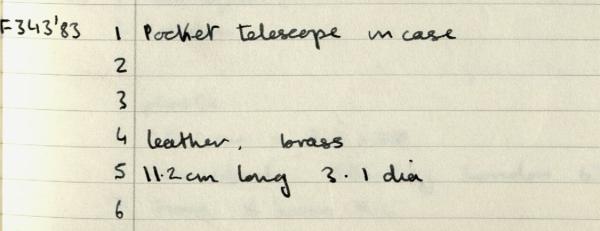 F343'83 1 Pocket telescope in case
2
3
4 leather, brass
5 11.2cm long 3.1 dia
6